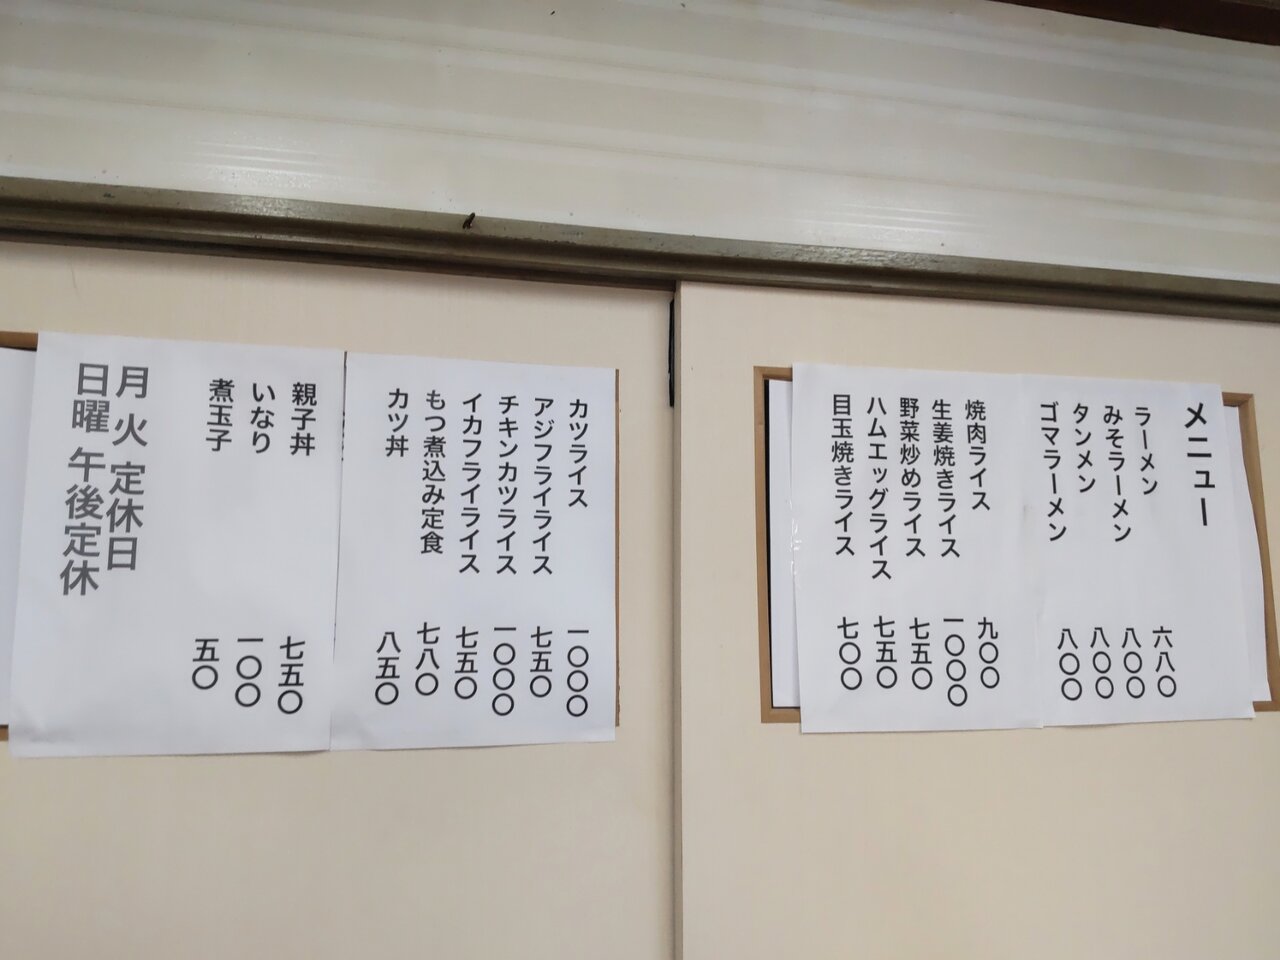 メニュー
ラーメン 六八〇
みそラーメン 八〇〇
タンメン 八〇〇
ゴマラーメン 八〇〇
焼肉ライス 九〇〇
生姜焼きライス 一〇〇〇
野菜炒めライス 七五〇
ハムエッグライス 七五〇
目玉焼きライス 七〇〇
カツライス 一〇〇〇
アジフライライス 七五〇
チキンカツライス 一〇〇〇
イカフライライス 七五〇
もつ煮込み定食 七八〇
カツ丼 八五〇
親子丼 七五〇
いなり 一〇〇
煮玉子 五〇
月 火 定休日
日曜 午後定休